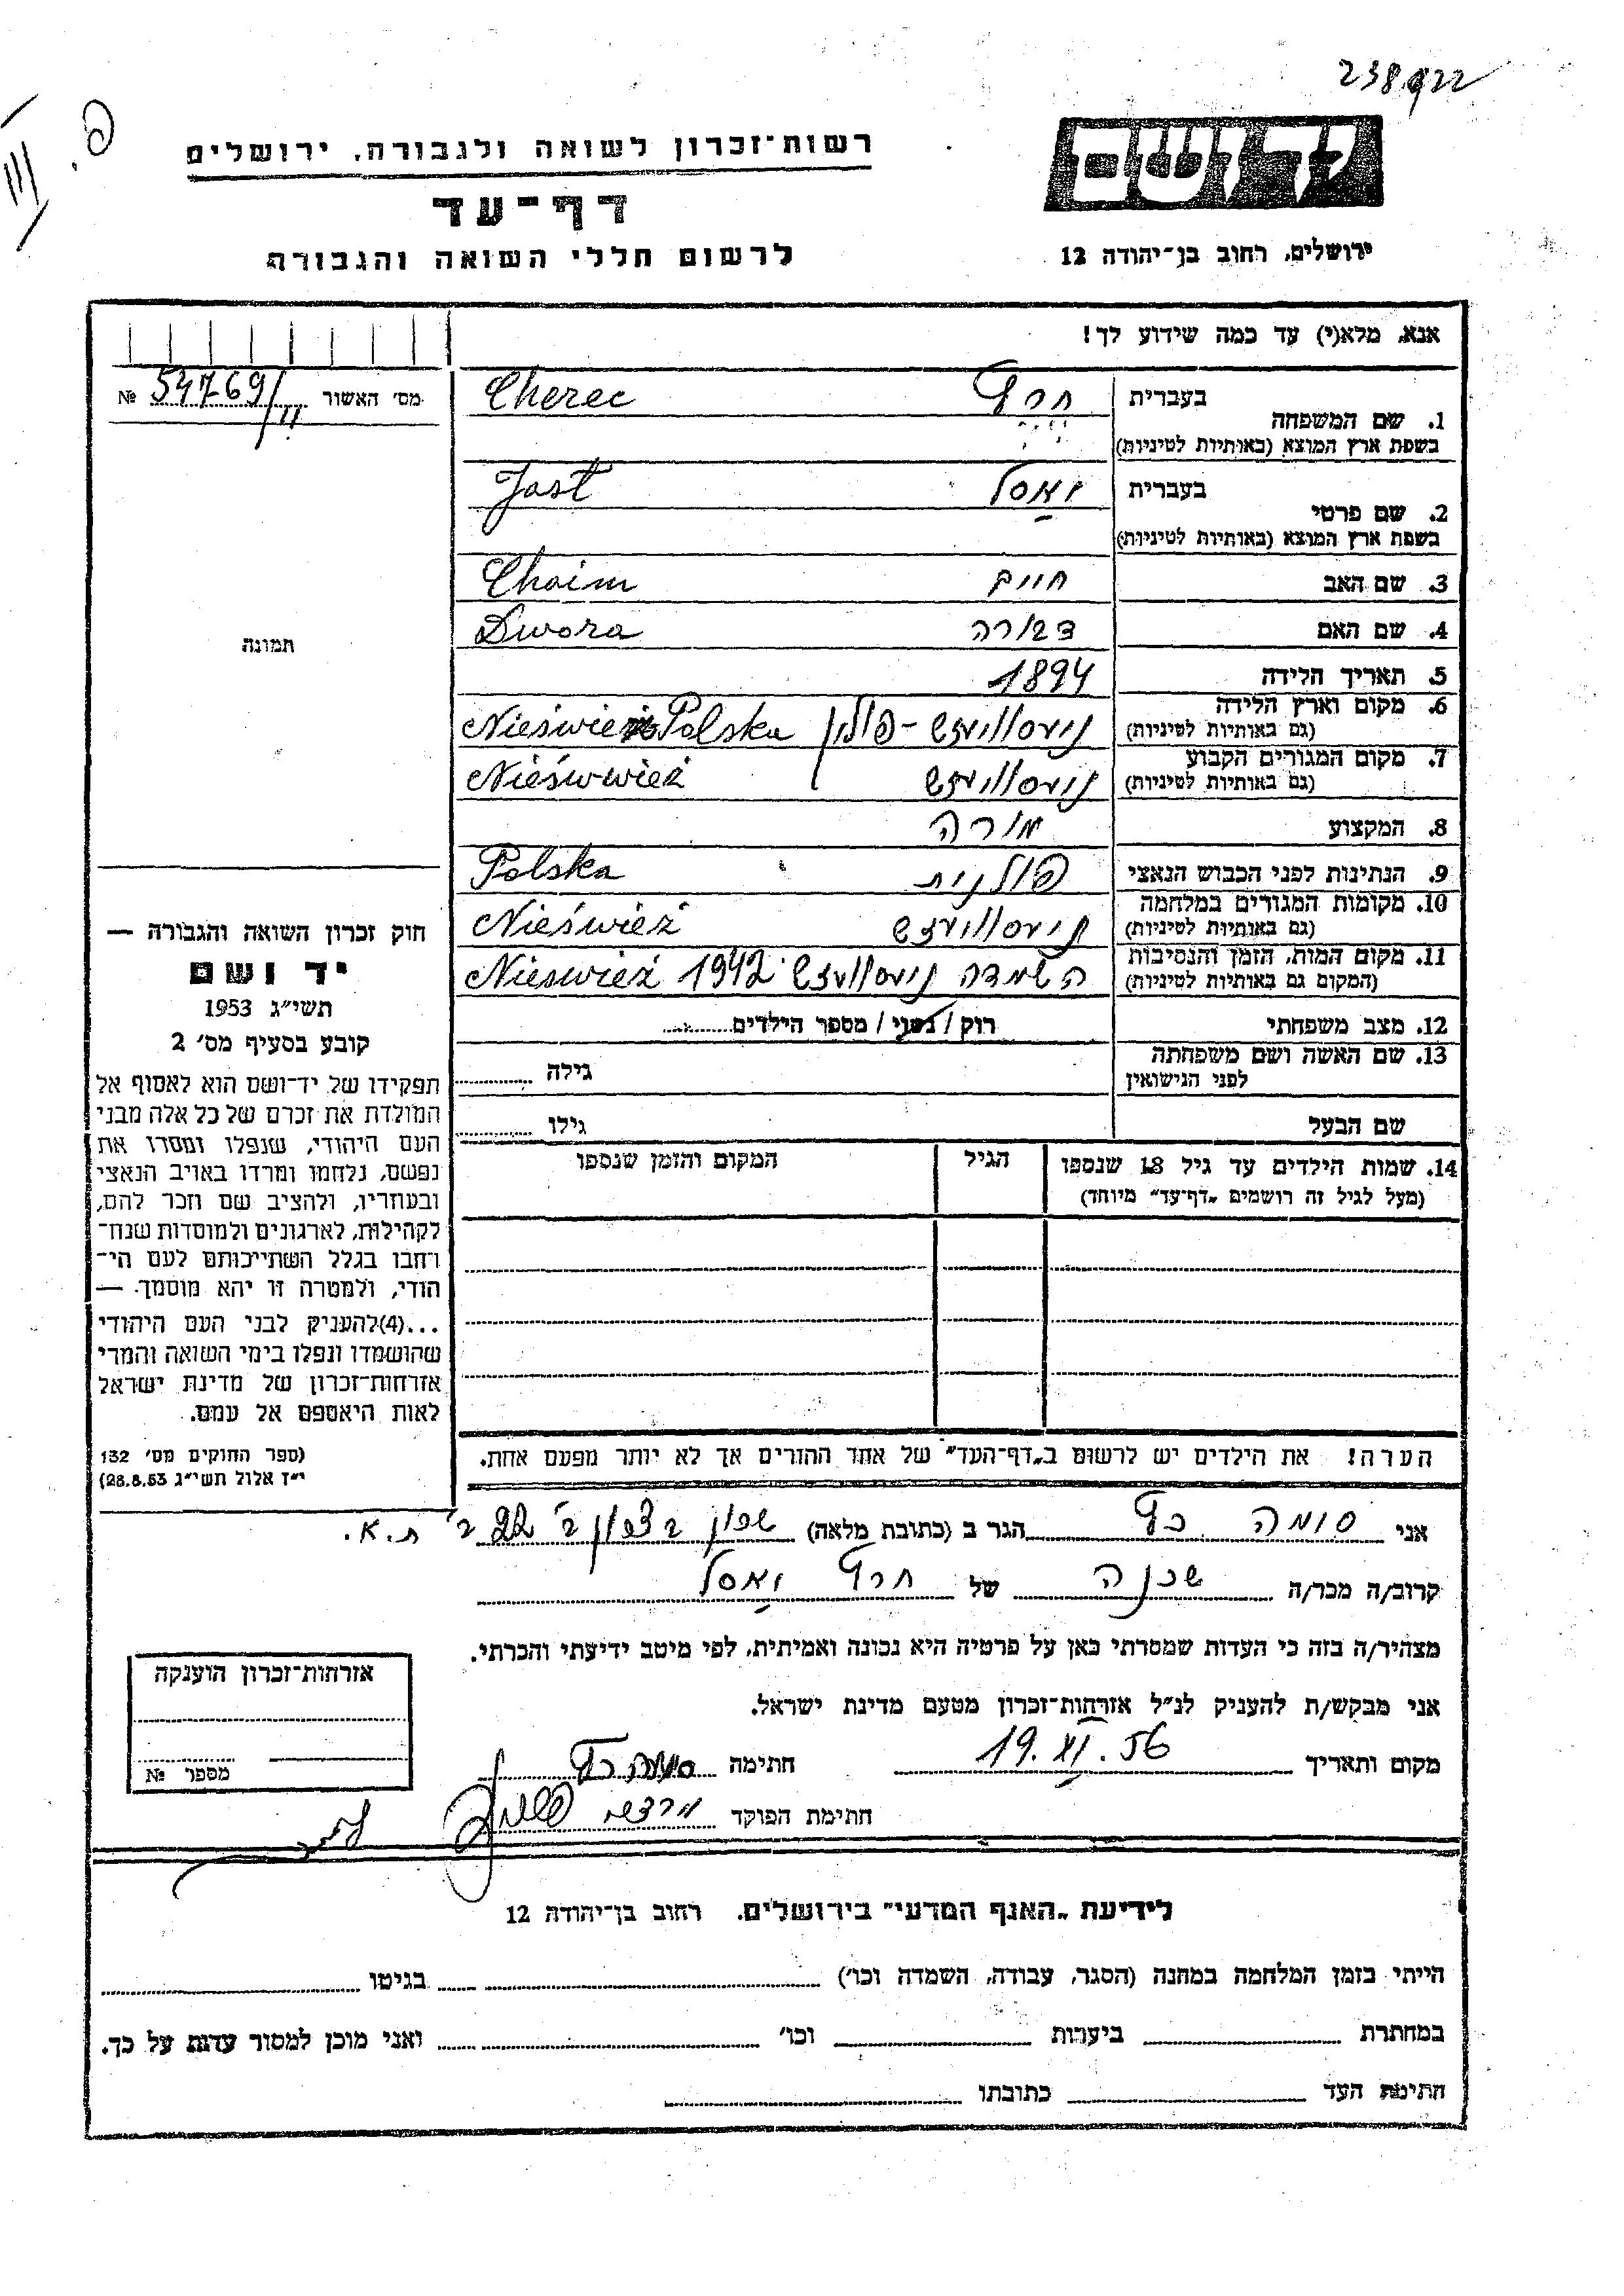 238922
פ.
III
יד ושם
רשות־זכרון לשואה ולגבורה, ירושלים
דף־עד
לרשום חללי השואה והגבורה
ירושלים, רחוב בן־יהודה 12
אנא, מלא(י) עד כמה שידוע לך!
מס׳ האשור № 54769/II
1. שם המשפחה בעברית חרץ Cherec
בשפת ארץ המוצא (באותיות לטיניות)
2. שם פרטי בעברית יאסל Josl
בשפת ארץ המוצא (באותיות לטיניות)
3. שם האב חיים Chaim
4. שם האם דבורה Dwora
5. תאריך הלידה 1894
6. מקום וארץ הלידה (גם באותיות לטיניות) ניסוויזש - פולין Nieświeź Polska
7. מקום המגורים הקבוע (גם באותיות לטיניות) ניסוויזש Nieśwwieź
8. המקצוע מורה
9. הנתינות לפני הכבוש הנאצי פולנית Polska
10. מקומות המגורים במלחמה (גם באותיות לטיניות) ניסוויזש Nieświeź
11. מקום המות, הזמן והנסיבות (המקום גם באותיות לטיניות) השמדה ניסוויזש 1942 Nieswieź
12. מצב משפחתי רווק / נשוי / מספר הילדים
13. שם האשה ושם משפחתה לפני הנישואין גילה
שם הבעל גילו
14. שמות הילדים עד גיל 18 שנספו הגיל המקום והזמן שנספו
(מעל לגיל זה רושמים „דף־עד״ מיוחד)
הערה! את הילדים יש לרשום ב„דף־העד״ של אחד ההורים אך לא יותר מפעם אחת.
תמונה
חוק זכרון השואה והגבורה —
יד ושם
תשי״ג 1953
קובע בסעיף מס׳ 2
תפקידו של יד־ושם הוא לאסוף אל
המולדת את זכרם של כל אלה מבני
העם היהודי, שנפלו ומסרו את
נפשם, נלחמו ומרדו באויב הנאצי
ובעוזריו, ולהציב שם וזכר להם,
לקהילות, לארגונים ולמוסדות שנח־
רבו בגלל השתייכותם לעם הי־
הודי, ולמטרה זו יהא מוסמך. —
...(4)להעניק לבני העם היהודי
שהושמדו ונפלו בימי השואה והמרי
אזרחות־זכרון של מדינת ישראל
לאות היאספם אל עמם.
(ספר החוקים מס׳ 132
י״ז אלול תשי״ג 28.8.53)
אני סומה כץ הגר ב (כתובת מלאה) שכון ב׳ 22 ת.א.
קרוב/ה מכר/ה שכנה של חרץ יאסל
מצהיר/ה בזה כי העדות שמסרתי כאן על פרטיה היא נכונה ואמיתית, לפי מיטב ידיעתי והכרתי.
אני מבקש/ת להעניק לנ״ל אזרחות־זכרון מטעם מדינת ישראל.
מקום ותאריך 19.XI.56 חתימה סומה כץ
חתימת הפוקד
אזרחות־זכרון הוענקה
מספר №
לידיעת „האגף המדעי״ בירושלים, רחוב בן־יהודה 12
הייתי בזמן המלחמה במחנה (הסגר, עבודה, השמדה וכו׳) בגיטו
במחתרת ביערות וכו׳ ואני מוכן למסור עדות על כך.
חתימת העד כתובתו